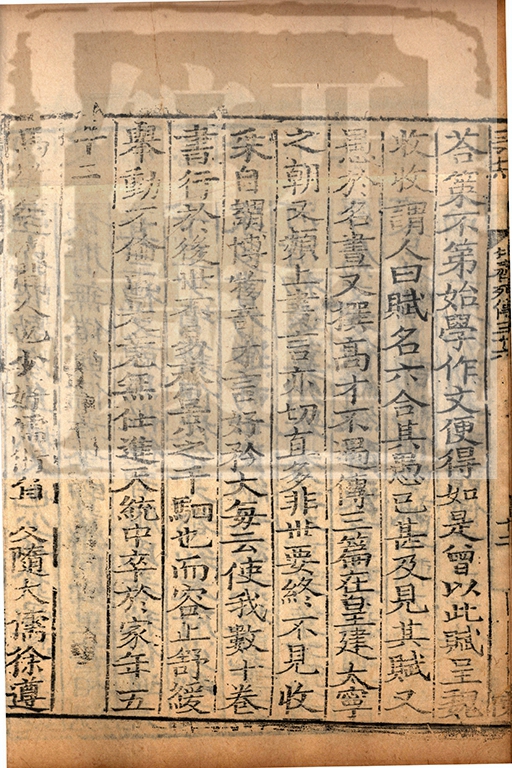 荅策不第始學作文便得如是曾以此賦呈魏
收收謂人曰賦名六合其愚已甚及見其賦又
愚於名晝又撰髙才不遇傳三篇在皇建太寧
之朝又頻上書言亦切直多非世要終不見收
采自謂博物竒才言好矜大每云使我數十卷
書行於後世不易齊景之千駟也而容止舒緩
舉動不倫綴無仕進天統中卒於家年五
十二
馬敬德河間人也少好儒術負笈隨大儒徐遵